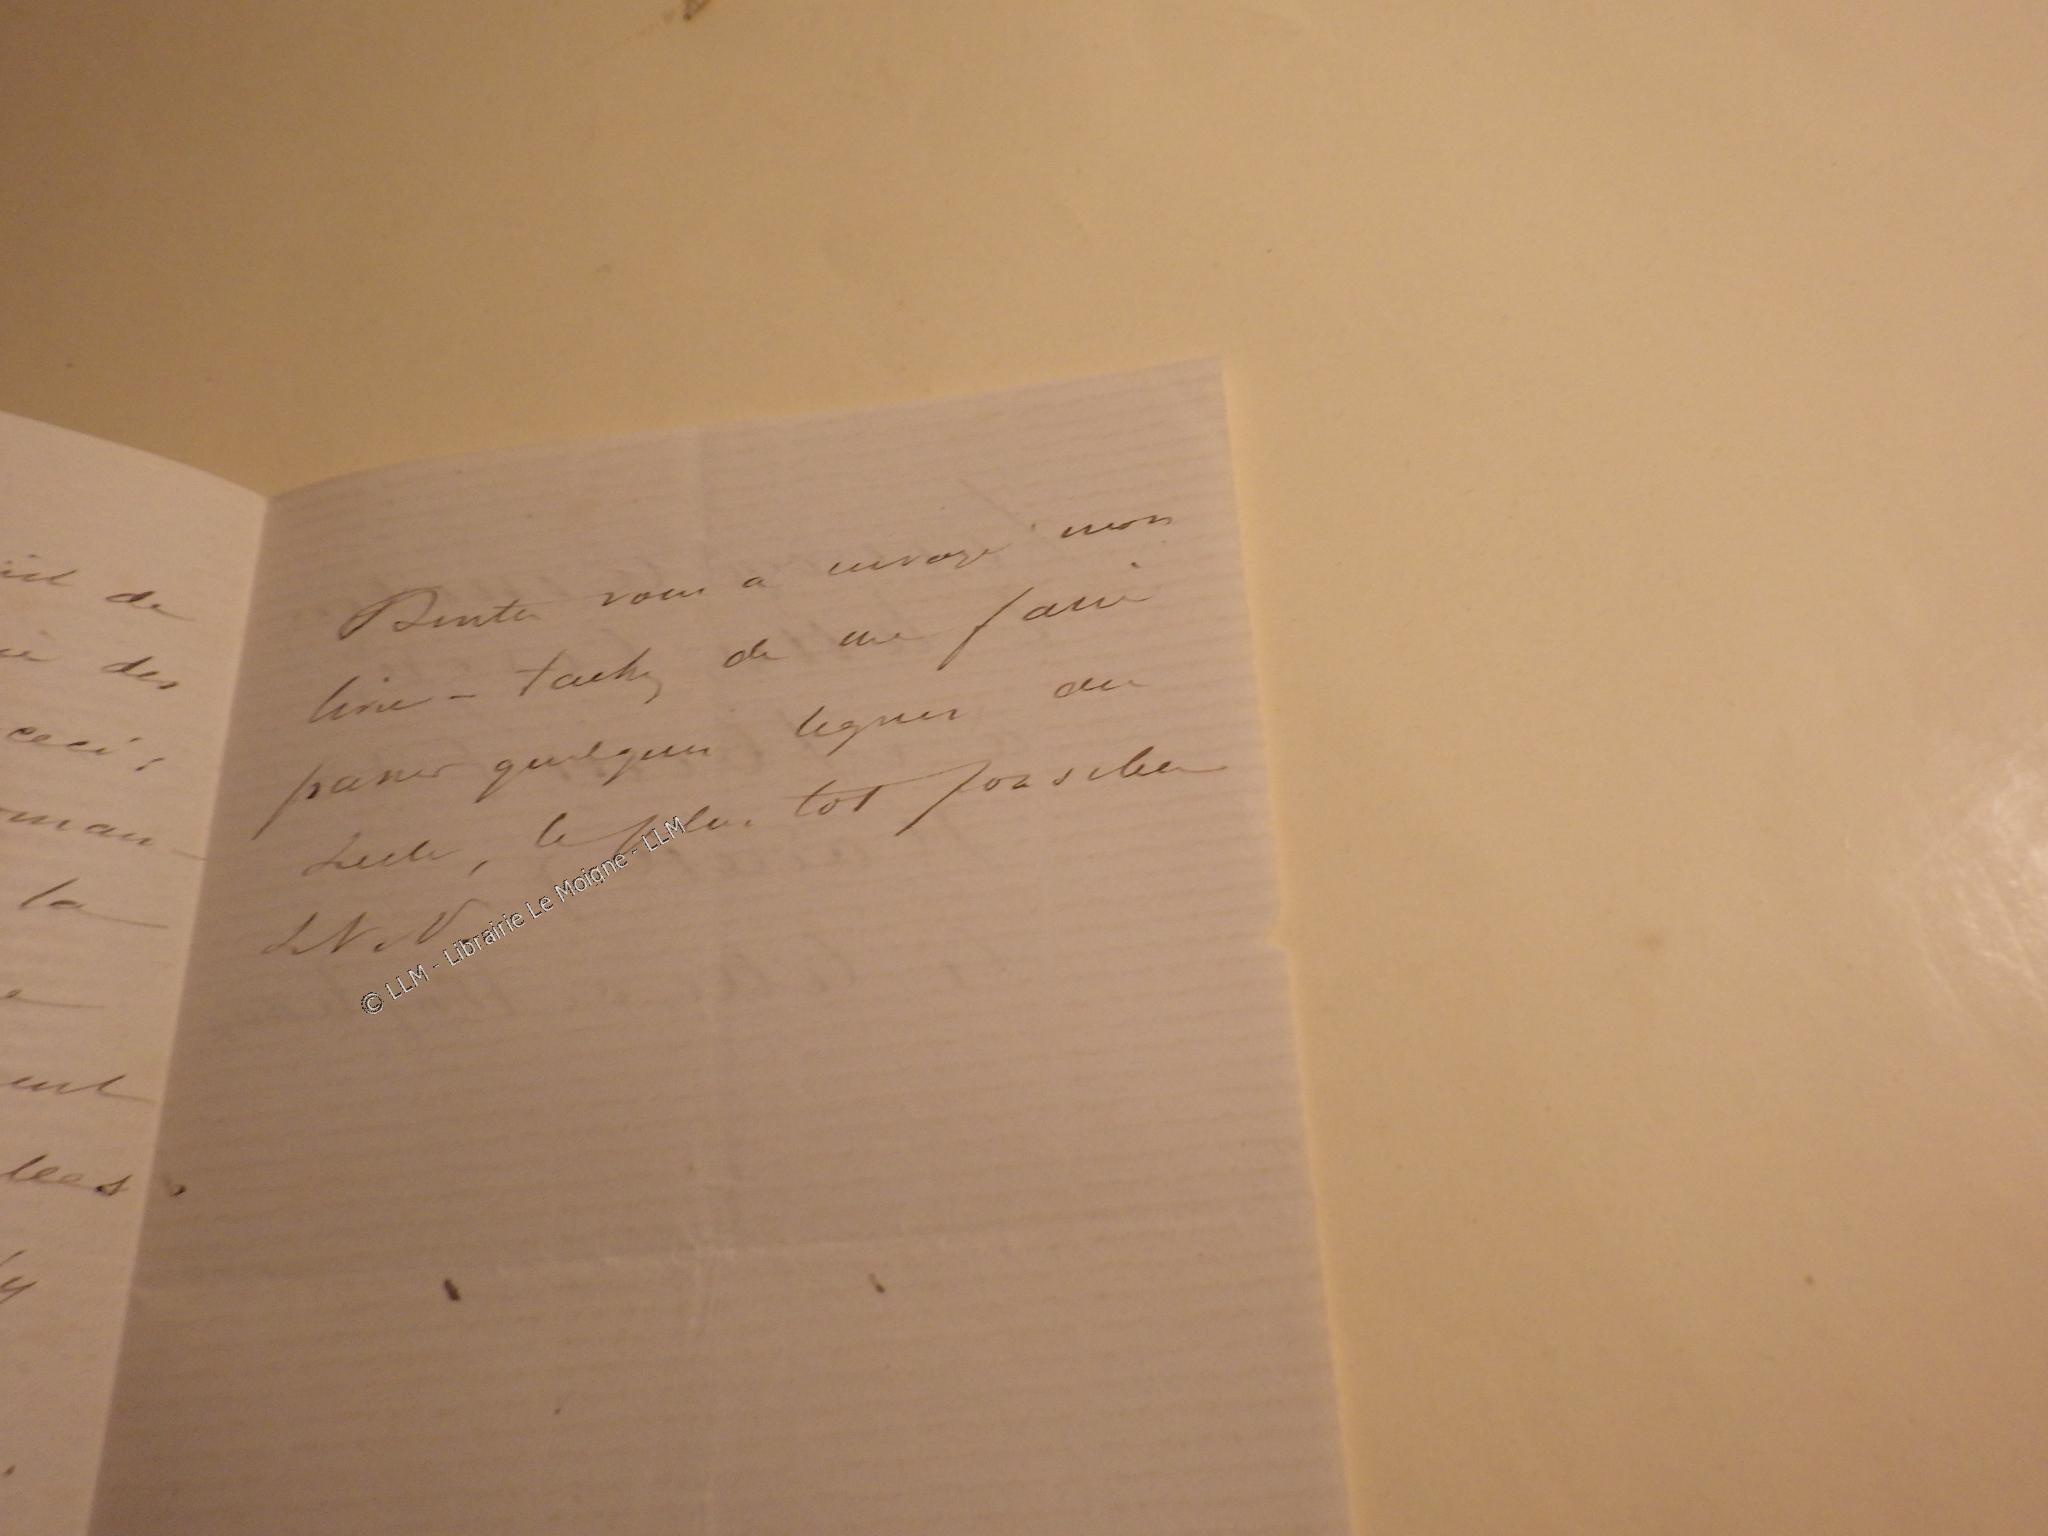 de
des
ceci ;
la
Dentu vous a envoyé mon
livre - tachez de me faire
passer quelques lignes du
Siècle, le plus tot possible
S.V.P.
© LLM - Librairie Le Moigne - LLM